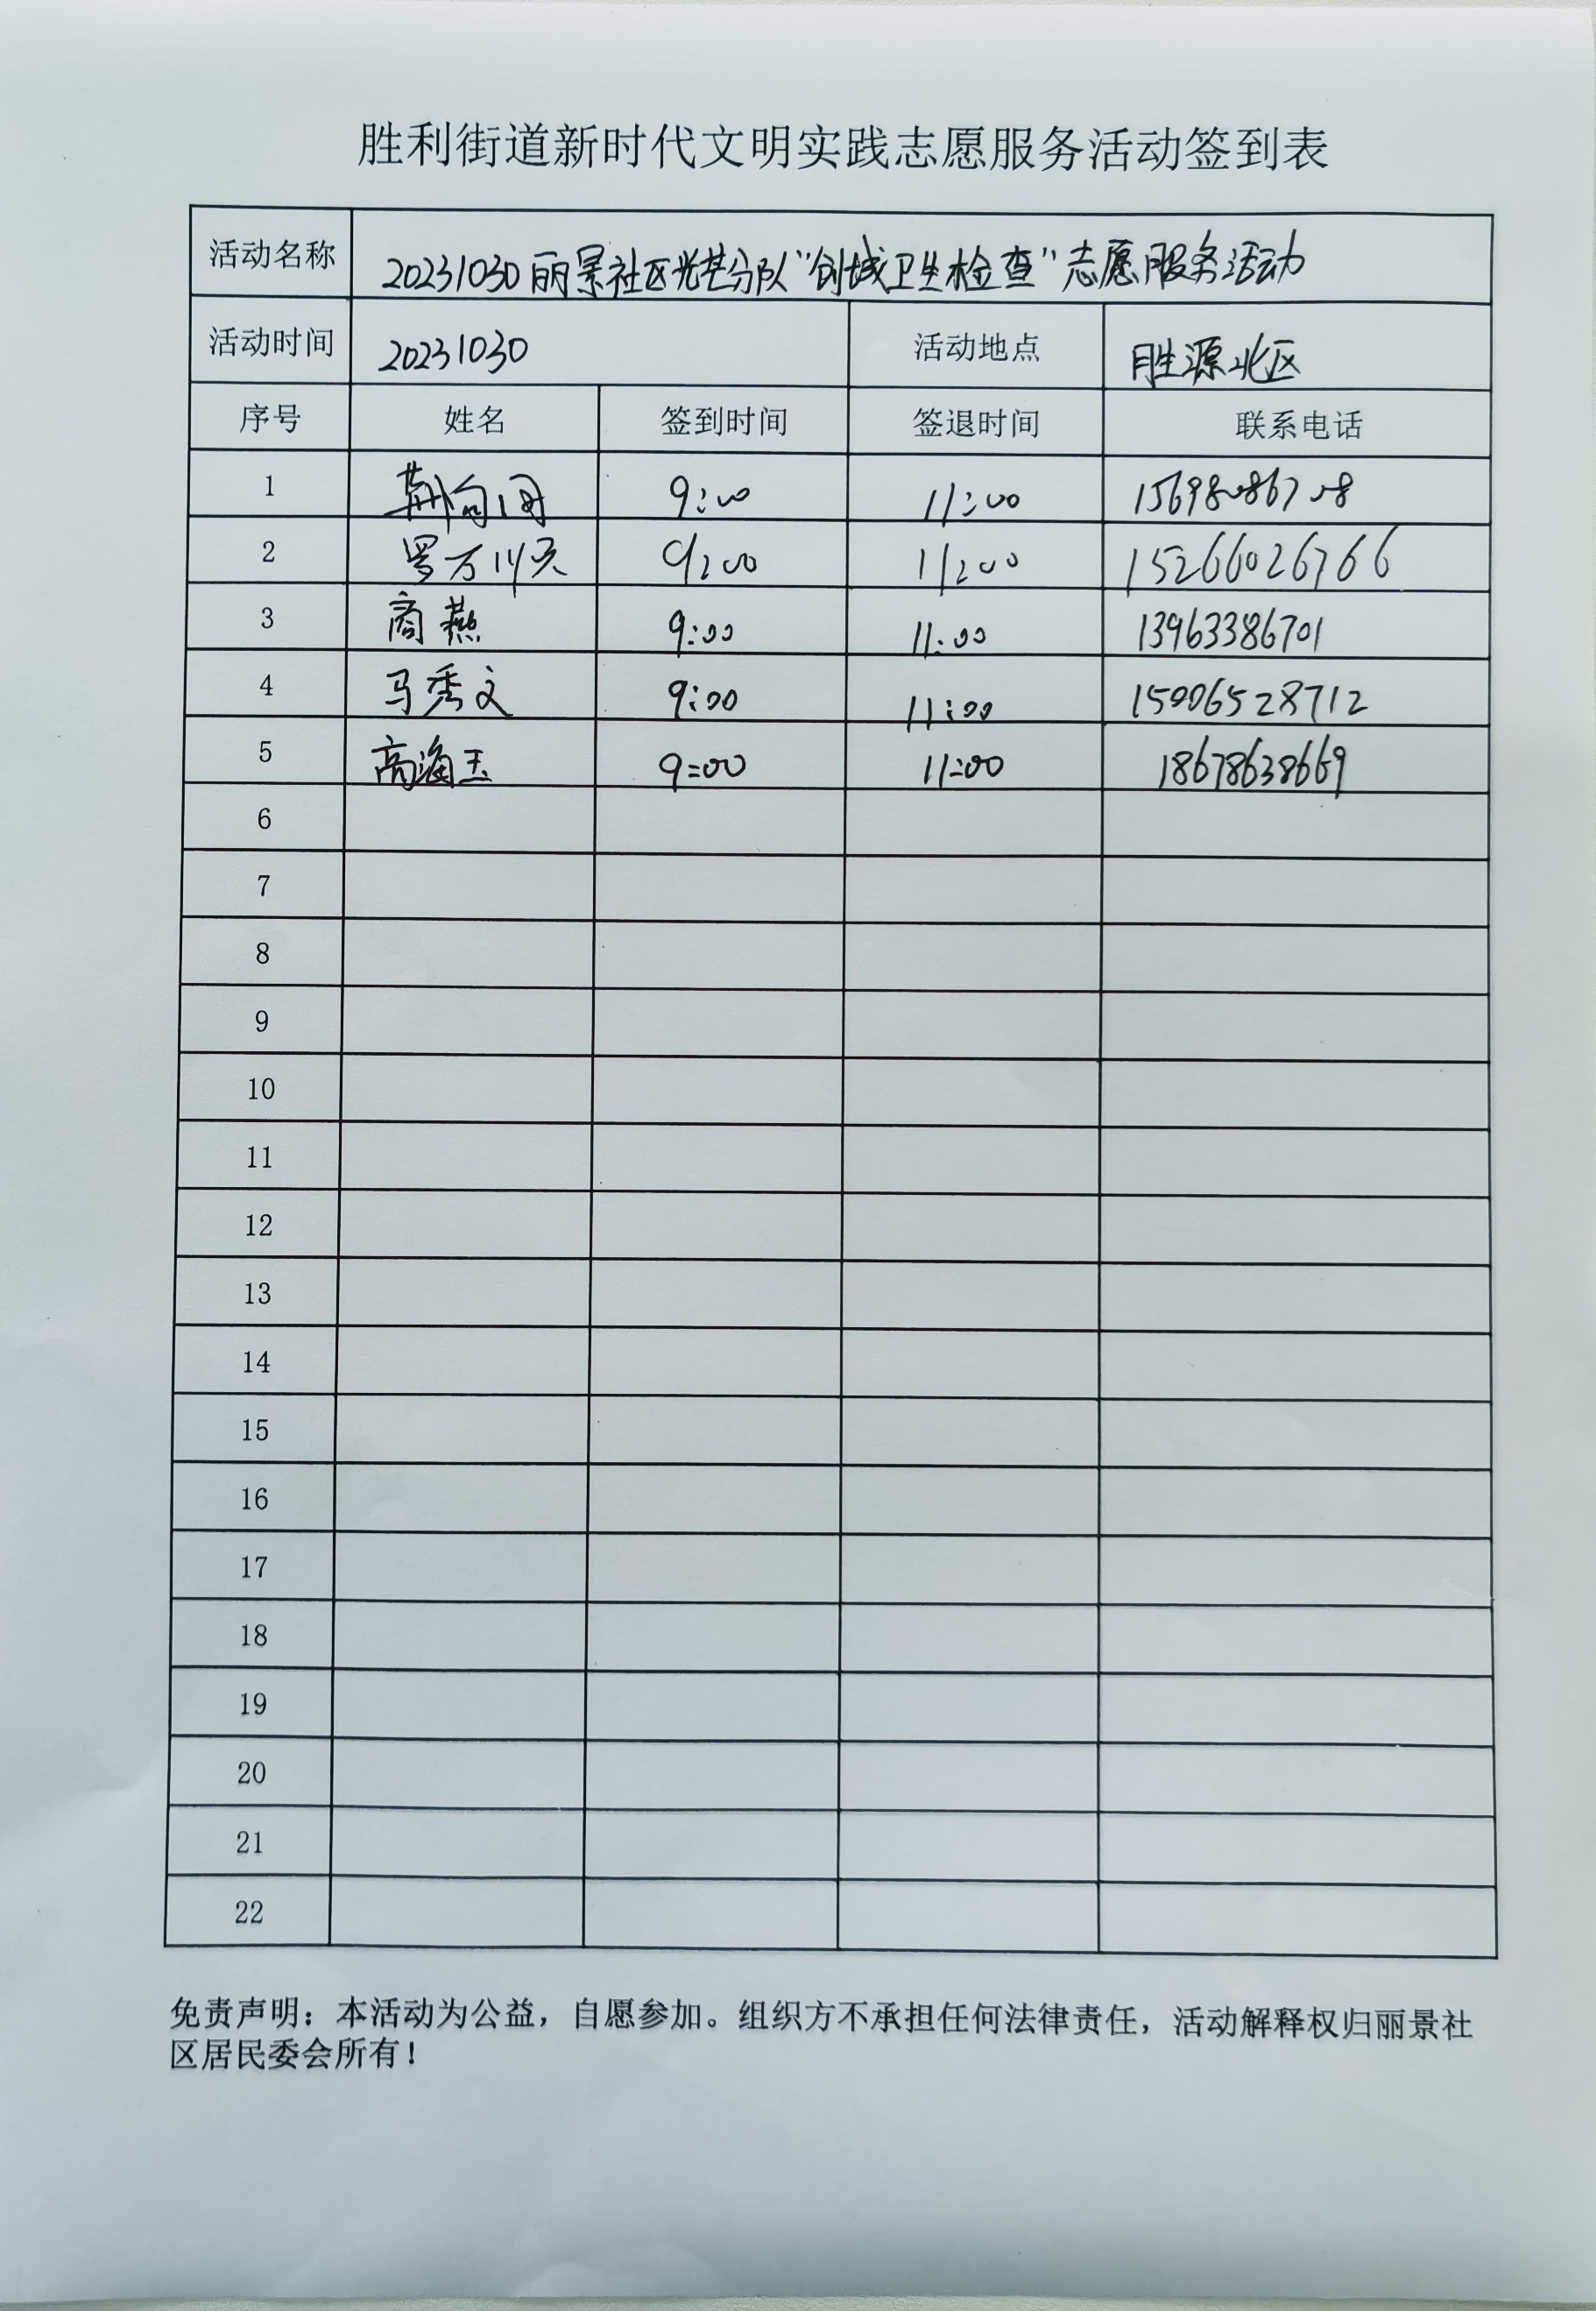 胜利街道新时代文明实践志愿服务活动签到表
活动名称 20231030丽景社区光芒分队“创城卫生检查”志愿服务活动
活动时间 20231030 活动地点 胜源北区
序号 姓名 签到时间 签退时间 联系电话
1 9:00 11:00
2 9:00 11:00 15266026766
3 商燕 9:00 11:00 13963386701
4 马秀文 9:00 11:00 15006528712
5 高海玉 9:00 11:00 18678638669
6
7
8
9
10
11
12
13
14
15
16
17
18
19
20
21
22
免责声明：本活动为公益，自愿参加。组织方不承担任何法律责任，活动解释权归丽景社
区居民委会所有！